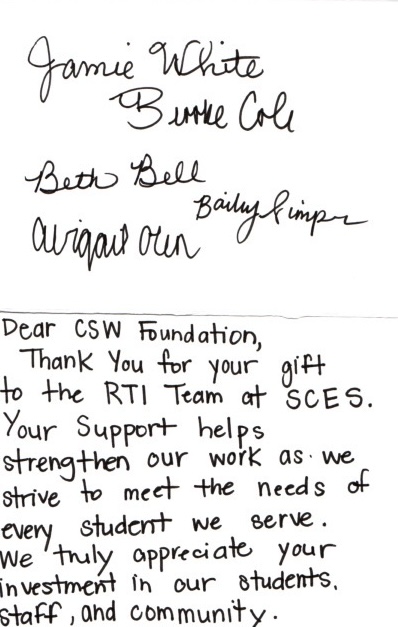 Jamie White
Burke Cole
Beth Bell
Baily
Abigail
Dear CSW Foundation,
Thank You for your gift
to the RTI Team at SCES.
Your Support helps
strengthen our work as we
strive to meet the needs of
every student we serve.
We truly appreciate your
investment in our students,
staff, and community.